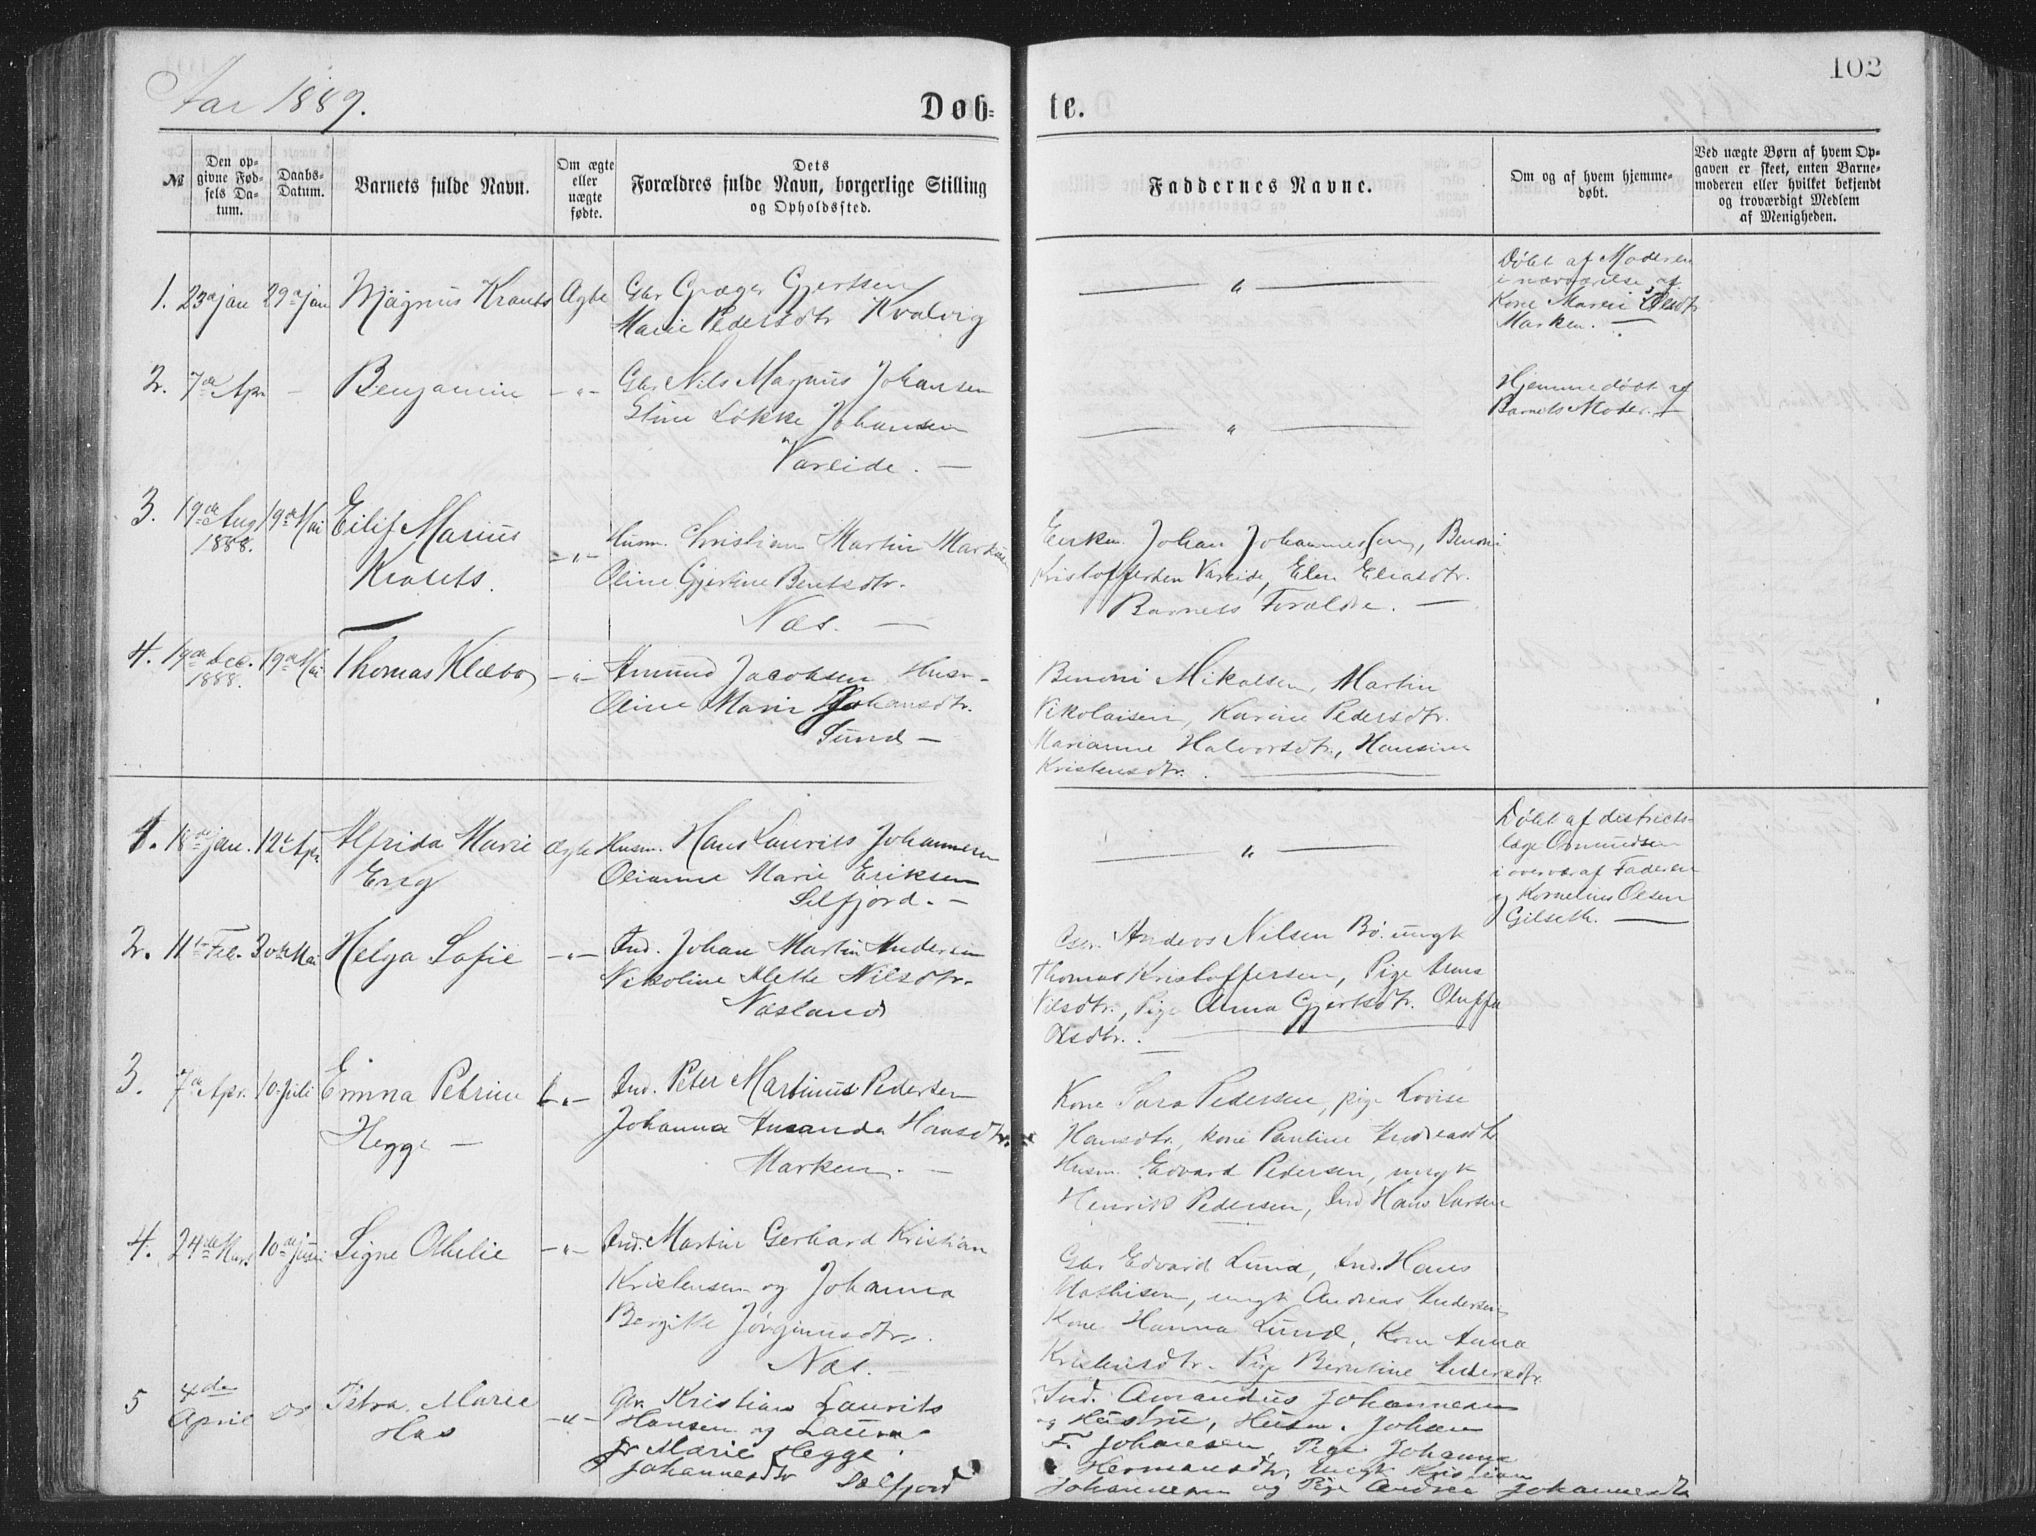 Aar 1889.
Døb=
te.
102
№
Den op=
givne Fød=
sels Da=
tum.
Daabs=
Datum.
Barnets fulde Navn.
Om ægte
eller
uægte
fødte.
Dets
Forældres fulde Navn, borgerlige Stilling
og Opholdssted.
Faddernes Navne.
Om og af hvem hjemme=
døbt.
Ved uægte Børn af hvem Op=
gaven er skeet, enten Barne=
moderen eller hvilket bekjendt
og troværdigt Medlem
af Menigheden.
1. 23de jan 29de jan Magnus Krants Ægte Gbr Græger Gjertsen
Marie Pedersdtr Kvalvig
— " —
Døbt af Moderen
i nærværelse af
Kone Maren Olsdtr
Marken. —
2. 7de Apr — Benjamin — " — Gbr Nils Magnus Johansen
Stine Løkke Johansen
Vareide. —
— " —
Hjemmedøbt af
Barnets Moder. —
3. 19de Aug 1888. 19de Mai Eilif Marius
Krants.
— " — Husm. Christian Martin Markusen
Oline Gjertine Bentsdtr.
Næs. —
Enkem. Johan Johannessen, Benoni
Kristoffersen Vareide, Elen Eliasdtr.
Barnets Forældre. —
4. 19de Dec. 1888. 19de Mai Thomas Klæbo — " — Amund Jacobsen Husm
Oline Marie Johansdtr.
Sund —
Benoni Mikalsen, Martin
Nikolaisen, Karine Pedersdtr.
Marianne Halvorsdtr., Hansine
Kristensdtr.
1. 18de jan. 12te Apr Alfrida Marie
Erig
Ægte Husm. Hans Laurits Johannesen
Olianna Marie Eriksen
Selfjord. —
— " —
Døbt af districts-
læge Osmundsen
i overvær af Faderen
og Kornelius Olsen
Gilseth. —
2. 11te Feb. 30te Mai Helga Sofie — " — Ind. Johan Martin Andersen
Nikoline Mette Nilsdtr.
Næsland
Gbr. Anders Nilsen Bø. ungk
Thomas Kristoffersen, Pige Anna
Nilsdtr., Pige Anna Gjertsdtr. Oluffa
Olsdtr. —
3. 7de Apr. 10 Juli Emma Petrine
Hegge —
— " — Ind. Peter Martinus Pedersen
Johanna Amanda Hansdtr.
Marken. —
Kone Sara Pedersen, pige Lovise
Hansdtr, kone Pauline Andreasdtr
Husm. Edvard Pedersen, ungk
Henrik Pedersen, Ind Hans Larsen
4. 24de Mars 10de Juni Signe Othelie — " — Ind. Martin Gerhard Kristian
Kristensen og Johanna
Bergitte Jørginusdtr.
Næs. —
Gbr Edvard Lund, Ind. Hans
Mathisen, ungk Andreas Andersen
Kone Hanna Lund, Kone Anna
Kristensdtr. Pige Berntine Andersdtr.
5 4de April Petra Marie
Has
— " — Gbr. Kristian Laurits
Hansen og Laura
Marie Hegge
Johannesdtr Selfjord
Ind. Amandus Johannesen
og Hustru, Husm. Johan
F. Johansen, Pige Johanna
Hermansdtr, Ungk Kristian
Johannesen og Pige Andrea Johannesdtr